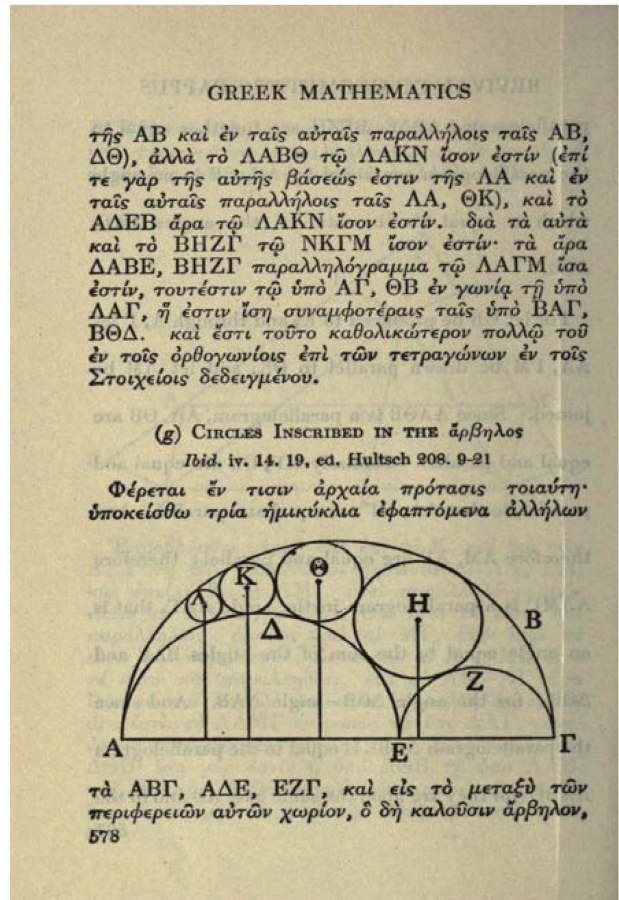 GREEK MATHEMATICS
τῆς ΑΒ καὶ ἐν ταῖς αὐταῖς παραλλήλοις ταῖς ΑΒ,
ΔΘ), ἀλλὰ τὸ ΛΑΒΘ τῷ ΛΑΚΝ ἴσον ἐστίν (ἐπί
τε γὰρ τῆς αὐτῆς βάσεώς ἐστιν τῆς ΛΑ καὶ ἐν
ταῖς αὐταῖς παραλλήλοις ταῖς ΛΑ, ΘΚ), καὶ τὸ
ΑΔΕΒ ἄρα τῷ ΛΑΚΝ ἴσον ἐστίν. διὰ τὰ αὐτὰ
καὶ τὸ ΒΗΖΓ τῷ ΝΚΓΜ ἴσον ἐστίν· τὰ ἄρα
ΔΑΒΕ, ΒΗΖΓ παραλληλόγραμμα τῷ ΛΑΓΜ ἴσα
ἐστίν, τουτέστιν τῷ ὑπὸ ΑΓ, ΘΒ ἐν γωνίᾳ τῇ ὑπὸ
ΛΑΓ, ἥ ἐστιν ἴση συναμφοτέραις ταῖς ὑπὸ ΒΑΓ,
ΒΘΔ. καὶ ἔστι τοῦτο καθολικώτερον πολλῷ τοῦ
ἐν τοῖς ὀρθογωνίοις ἐπὶ τῶν τετραγώνων ἐν τοῖς
Στοιχείοις δεδειγμένου.
(g) CIRCLES INSCRIBED IN THE ἄρβηλος
Ibid. iv. 14. 19, ed. Hultsch 208. 9-21
Φέρεται ἔν τισιν ἀρχαία πρότασις τοιαύτη·
ὑποκείσθω τρία ἡμικύκλια ἐφαπτόμενα ἀλλήλων
Θ
Κ
Λ
Η
Δ
Β
Ζ
Α
Ε
Γ
τὰ ΑΒΓ, ΑΔΕ, ΕΖΓ, καὶ εἰς τὸ μεταξὺ τῶν
περιφερειῶν αὐτῶν χωρίον, ὃ δὴ καλοῦσιν ἄρβηλον,
578